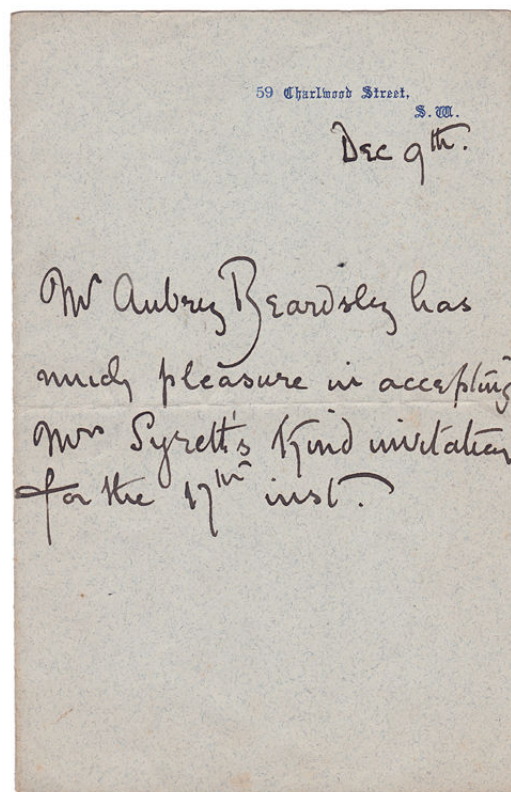 59 Charlwood Street,
S.W.
Dec 9th.
Mr Aubrey Beardsley has
much pleasure in accepting
Mrs Syrett's kind invitation
for the 17th inst.